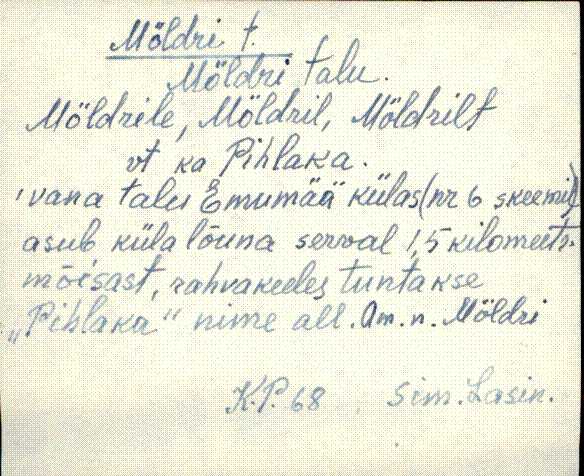 Möldri t.
Möldri talu.
Möldrile, Möldril, Möldrilt
vt ka Pihlaka.
'vana talu Emumää külas (nr 6 skeemil)
asub küla lõuna serval 1,5 kilomeetr.
mõisast, rahvakeeles tuntakse
„Pihlaka" nime all. Am. n. Möldri
K.P. 68 Sim. Lasin.